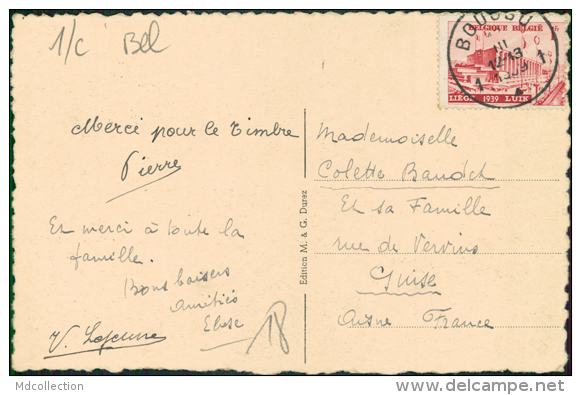 1/c Bel
BOUSSU
BELGIQUE BELGIË
LIÉGE 1939 LUIK
Merci pour le timbre
Pierre
Et merci à toute la
famille.
Bons baisers
Amitiés
V. Lejeune
18
Edition M. & G. Durez
Mademoiselle
Colette Baudet
Et sa Famille
rue de Vervins
Guise
Aisne France
Mdcollection
delcampe.net